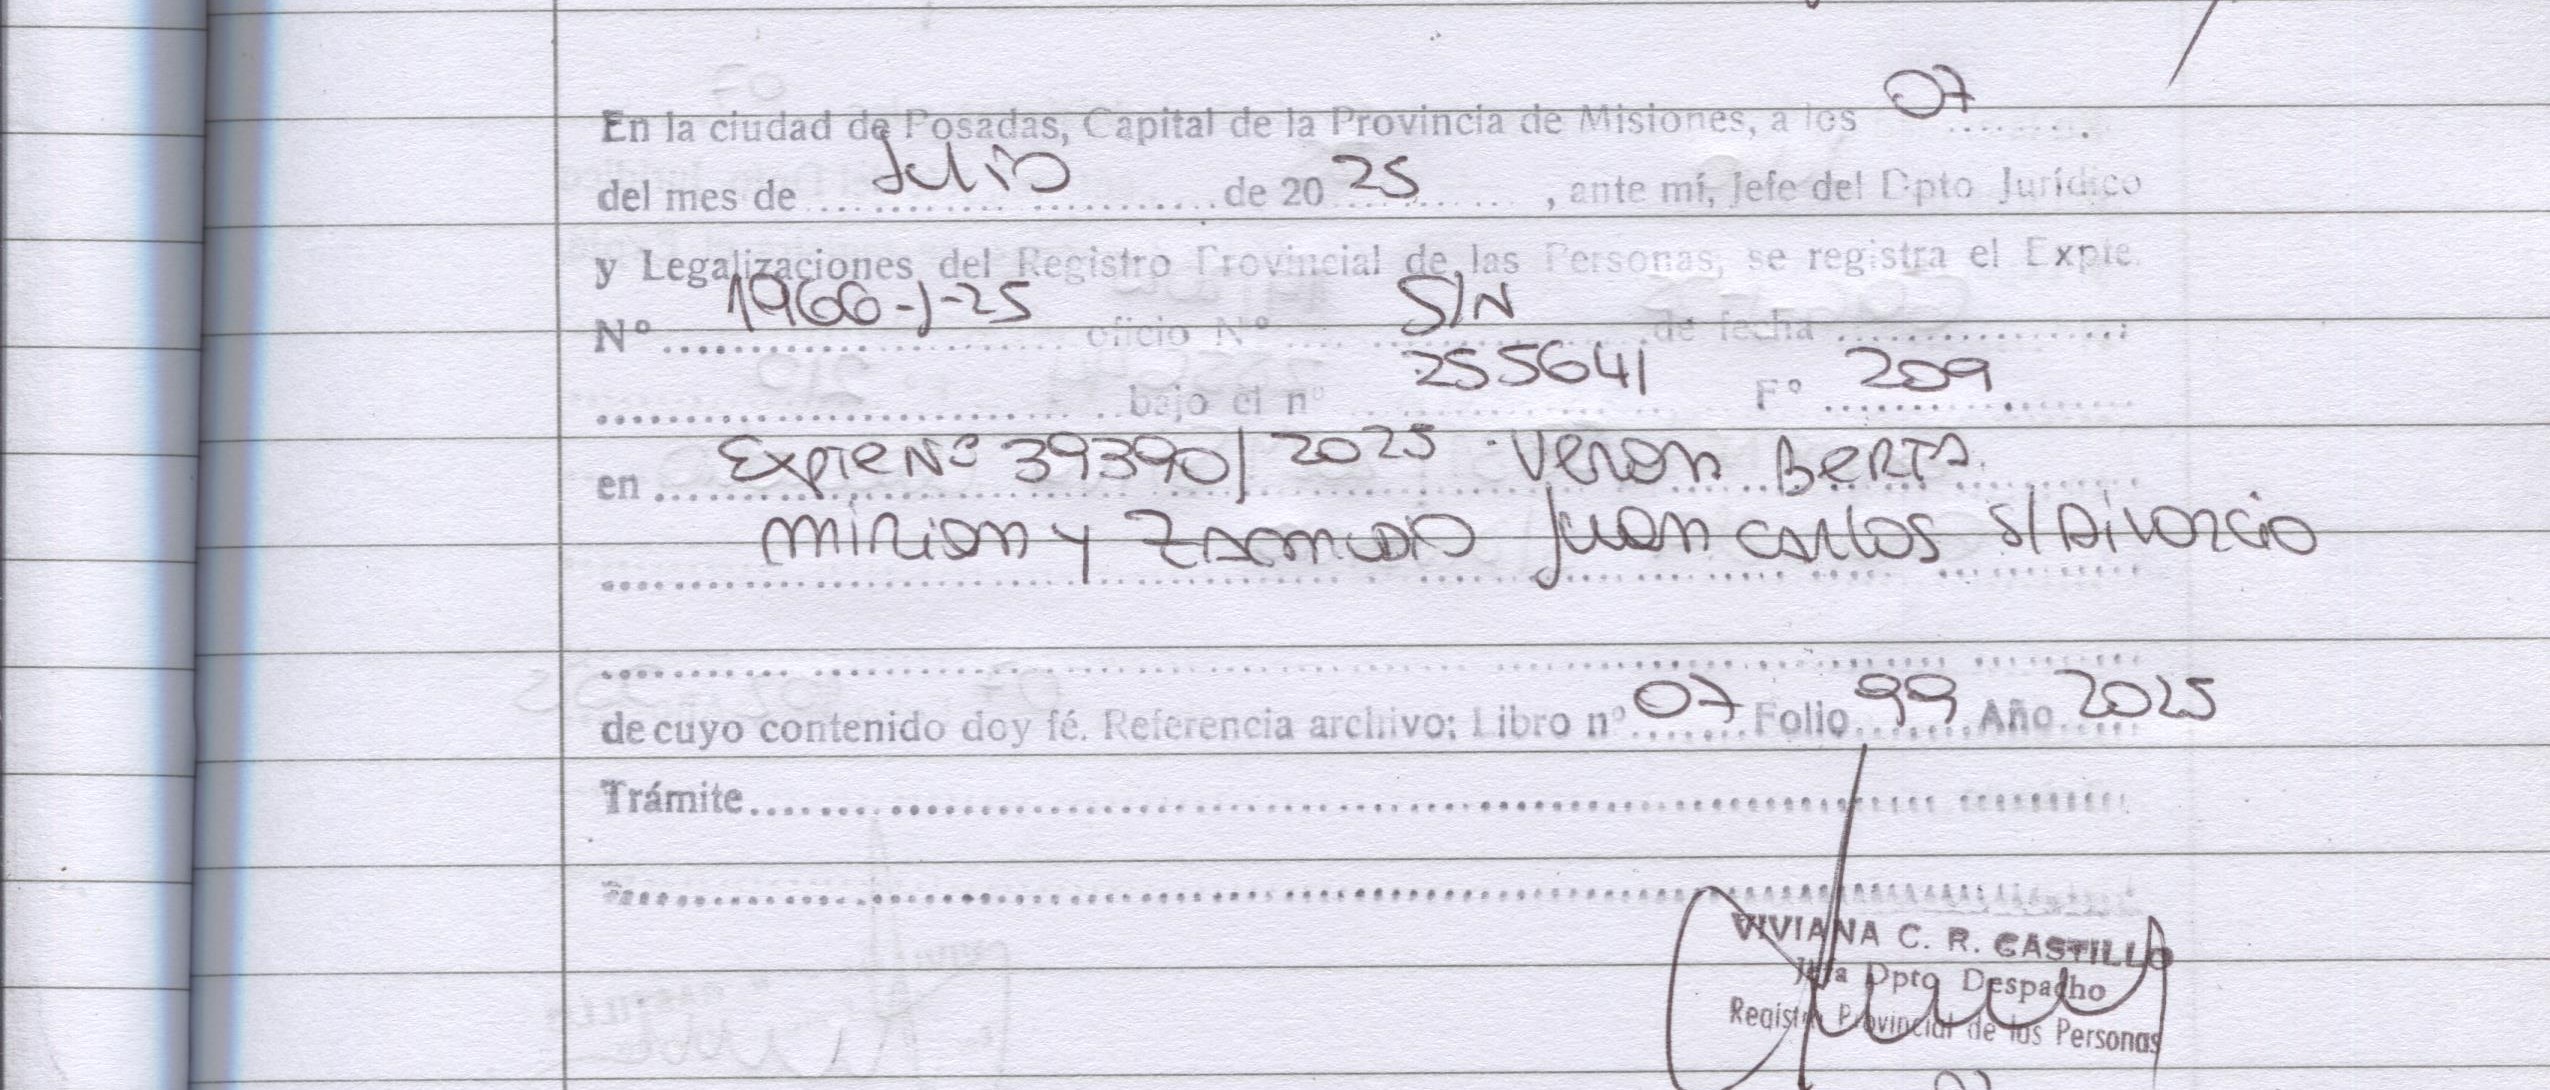 En la ciudad de Posadas, Capital de la Provincia de Misiones, a los 07
del mes de Julio de 20 25, ante mí, Jefe del Dpto Jurídico
y Legalizaciones del Registro Provincial de las Personas, se registra el Expte.
Nº 1966-J-25 oficio Nº S/N de fecha
bajo el nº 255641 Fº 209
en Expte Nº 39390/2025 Veron Berta
Mirian y Zamudio Juan Carlos S/Divorcio
de cuyo contenido doy fé. Referencia archivo: Libro nº 07 Folio 99 Año 2025
Trámite
VIVIANA C. R. CASTILLO
Jefa Dpto Despacho
Registro Provincial de las Personas